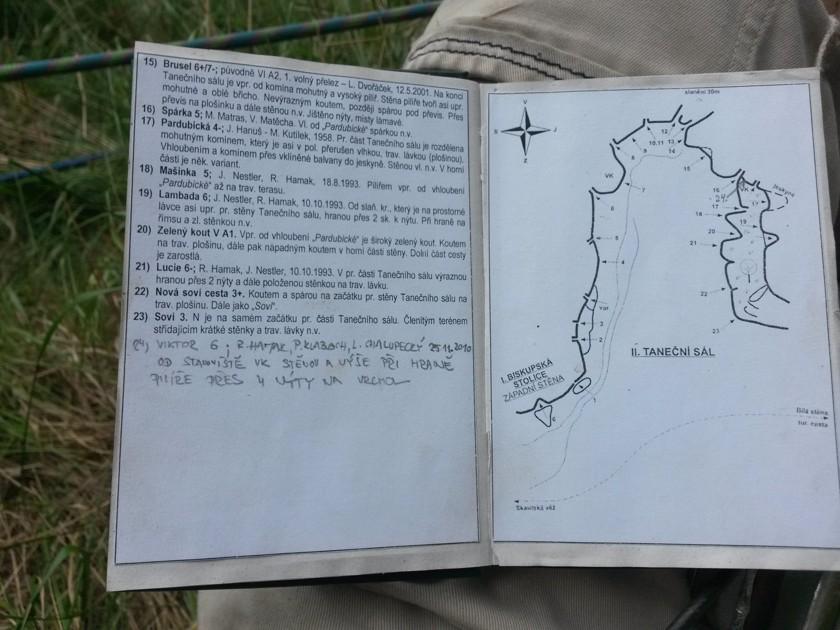 15) Brusel 6+/7-; původně VI A2, 1. volný přelez – L. Dvořáček, 12.5.2001. Na konci
Tanečního sálu je vpr. od komína mohutný a vysoký pilíř. Stěna pilíře tvoří asi upr.
mohutné a oblé břicho. Nevýrazným koutem, později spárou pod převis. Přes
převis na plošinku a dále stěnou n.v. Jištěno nýty, místy lámavé.
16) Spárka 5; M. Matras, V. Matěcha. Vl. od „Pardubické" spárkou n.v.
17) Pardubická 4-; J. Hanuš - M. Kutílek, 1958. Pr. část Tanečního sálu je rozdělena
mohutným komínem, který je asi v pol. přerušen vlhkou, trav. lávkou (plošinou).
Vhloubením a komínem přes vklíněné balvany do jeskyně. Stěnou vl. n.v. V horní
části je něk. variant.
18) Mašinka 5; J. Nestler, R. Hamak, 18.8.1993. Pilířem vpr. od vhloubení
„Pardubické" až na trav. terasu.
19) Lambada 6; J. Nestler, R. Hamak, 10.10.1993. Od slaň. kr., který je na prostorné
lávce asi upr. pr. stěny Tanečního sálu, hranou přes 2 sk. k nýtu. Při hraně na
římsu a zl. stěnkou n.v.
20) Zelený kout V A1. Vpr. od vhloubení „Pardubické" je široký zelený kout. Koutem
na trav. plošinu, dále pak nápadným koutem v horní části stěny. Dolní část cesty
je zarostlá.
21) Lucie 6-; R. Hamak, J. Nestler, 10.10.1993. V pr. části Tanečního sálu výraznou
hranou přes 2 nýty a dále položenou stěnkou na trav. lávku.
22) Nová soví cesta 3+. Koutem a spárou na začátku pr. stěny Tanečního sálu na
trav. plošinu. Dále jako „Soví".
23) Soví 3. N je na samém začátku pr. části Tanečního sálu. Členitým terénem
střídajícím krátké stěnky a trav. lávky n.v.
24) VIKTOR 6; R. HAMAK, P. KLABOCH, L. CHALUPECKÝ 25.11.2010
OD STANOVIŠTĚ VK STĚNOU A VÝŠE PŘI HRANĚ
PILÍŘE PŘES 4 NÝTY NA VRCHOL
slanění 30m
V
S
J
Z
12
10,11
13
9
14
8
15
VK
7
16
VK
jeskyně
24
17
17
6
18
19
20
5
21
4
22
Var
3
23
2
II. TANEČNÍ SÁL
I. BISKUPSKÁ
STOLICE
ZÁPADNÍ STĚNA
1
Bílá stěna
tur. cesta
Skautská věž